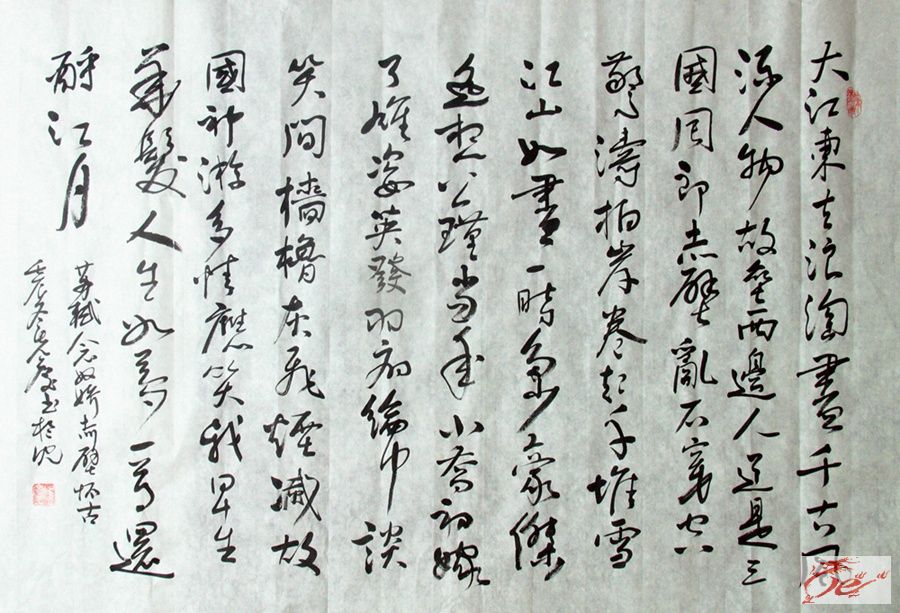 大江東去浪淘盡千古風
流人物故壘西邊人道是三
國周郎赤壁亂石穿空
驚濤拍岸卷起千堆雪
江山如畫一時多少豪傑
遙想公瑾當年小喬初嫁
了雄姿英發羽扇綸巾談
笑間檣櫓灰飛煙滅故
國神游多情應笑我早生
華髮人生如夢一尊還
酹江月
蘇軾念奴嬌赤壁怀古
書於沈